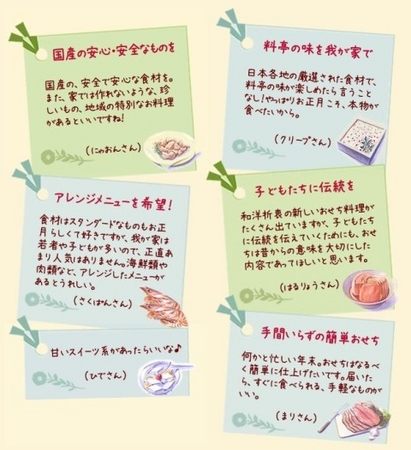 国産の安心・安全なものを
国産の、安全で安心な食材を。
また、家では作れないような、珍
しいもの、地域の特別なお料理
があるといいですね!
(にゃおんさん)
アレンジメニューを希望!
食材はスタンダードなものもお正
月らしくて好きですが、我が家は
若者や子どもが多いので、正直あ
まり人気はありません。海鮮類や
肉類など、アレンジしたメニューが
あるとうれしい。
(さくぱんさん)
甘いスイーツ系があったらいいな♪
(ひでさん)
料亭の味を我が家で
日本各地の厳選された食材で、
料亭の味が楽しめたら言うこと
なし!やっぱりお正月こそ、本物が
食べたいから。
(クリープさん)
子どもたちに伝統を
和洋折衷の新しいおせち料理が
たくさん出ていますが、子どもたち
に伝統を伝えていくためにも、おせ
ちは昔からの意味を大切にした
内容であってほしいと思います。
(はるりょうさん)
手間いらずの簡単おせち
何かと忙しい年末。おせちはなるべ
く簡単に仕上げたいです。届いた
ら、すぐに食べられる、手軽なものが
いい。
(まりさん)